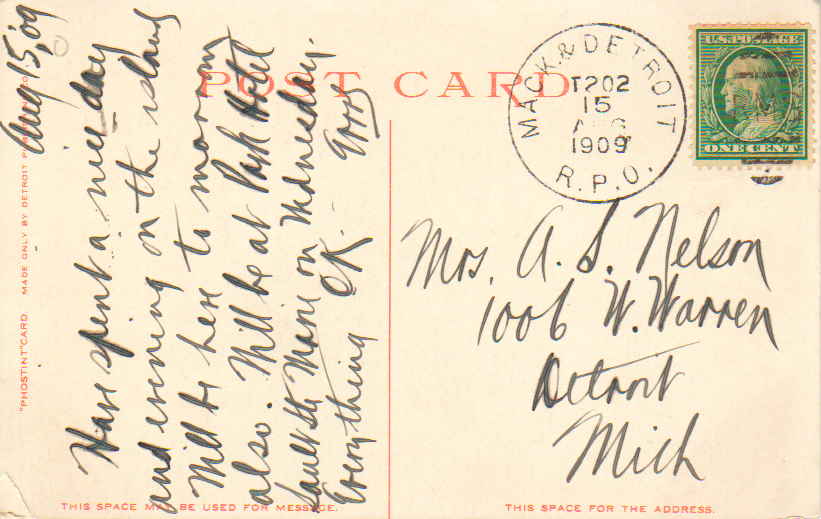 POST CARD
Aug 15, '09
Have spent a nice day
and evening on the island
Will be here to morrow
also. Will be at Park Hotel
Sault Ste Marie on Wednesday.
Everything OK.
"PHOSTINT" CARD. MADE ONLY BY DETROIT
THIS SPACE MAY BE USED FOR MESSAGE.
MACK. & DETROIT
T202
15
AUG
1909
R.P.O.
U.S. POSTAGE
ONE CENT
Mrs. A. S. Nelson
1006 W. Warren
Detroit
Mich
THIS SPACE FOR THE ADDRESS.